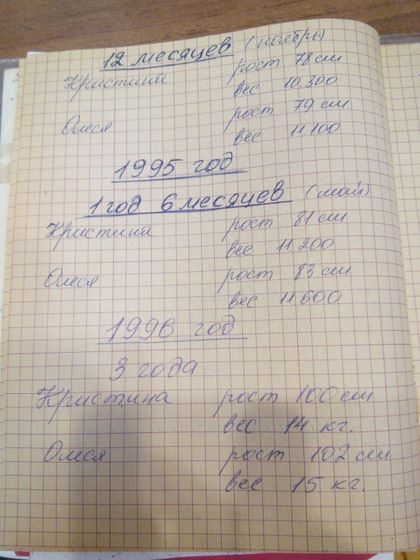 12 месяцев (ноябрь)
Кристина рост 78 см
вес 10.300
Олеся рост 79 см
вес 11.100
1995 год
1 год 6 месяцев (май)
Кристина рост 81 см
вес 11.200
Олеся рост 83 см
вес 11.600
1996 год
3 года
Кристина рост 100 см
вес 14 кг.
Олеся рост 102 см
вес 15 кг.